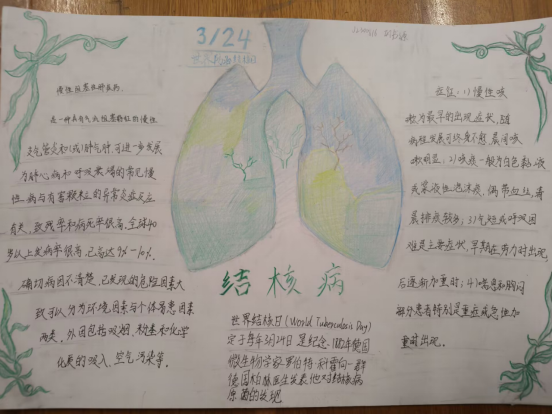 3/24
世界防治结核病日
慢性阻塞性肺疾病,
是一种具有气流阻塞特征的慢性
支气管炎和(或)肺气肿,可进一步发展
为肺心病和呼吸衰竭的常见慢
性病与有害颗粒的异常炎症反应
有关,致残率和病死率很高,全球40
岁以上发病率很高,已高达9%-10%.
确切病因不清楚,已发现的危险因素大
致可以分为环境因素与个体易患因素
两类,外因包括吸烟,粉尘和化学
的吸入,空气污染等,
结核病
世界结核日(World Tuberculosis Day)
定于每年3月24日是纪念1882年德国
微生物学家罗伯特·科霍向一群
德国柏林医生发表他对结核病
原菌的发现
症状:1)慢性咳
嗽为最早的出现症状,随
病程发展可终身不愈,晨间咳
嗽明显;2)咳痰一般为白色黏液
或浆液性泡沫痰,偶带血丝,清
晨排痰较多;3)气短或呼吸困
难是主要症状,早期在劳力时出现,
后逐渐加重时;4)喘息和胸闷
部分患者特别是重症或急性加
重时出现.